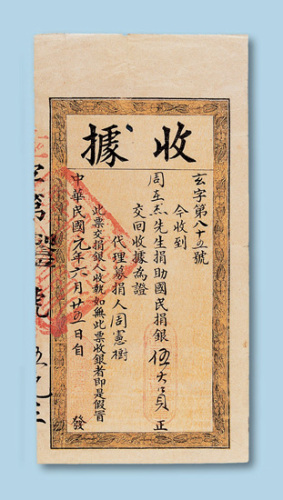 收據
玄字第八十五號
今收到
周至杰先生捐助國民捐銀伍大員正
交回收據為證
代理募捐人周憲樹
此票交捐銀人收執如無此票收銀者即是假冒
中華民國元年六月廿五日自發